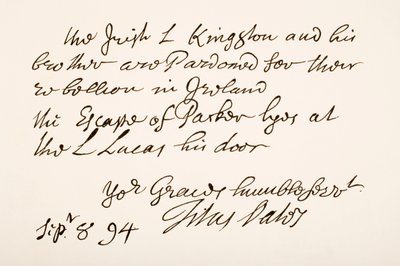 the Irish L Kingston and his
brother are Pardoned for their
rebellion in Ireland
the Escape of Parker lyes at
the L Lucas his door
Yor Graces humble servt.
Sepr. 8 94 Titus Oates